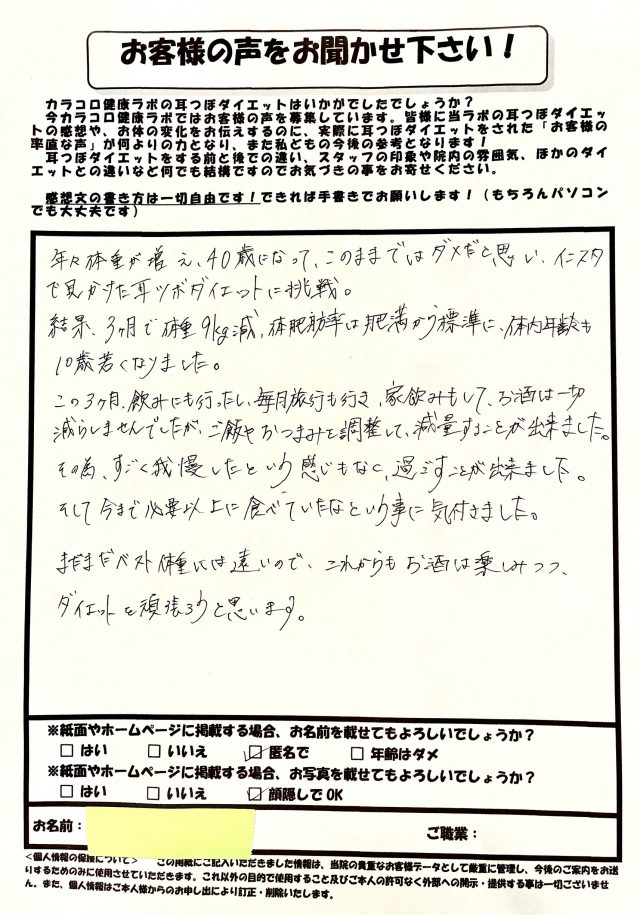 お客様の声をお聞かせ下さい！
カラコロ健康ラボの耳つぼダイエットはいかがでしたでしょうか？
今カラコロ健康ラボではお客様の声を募集しています。皆様に当ラボの耳つぼダイエッ
トの感想や、お体の変化をお伝えするのに、実際に耳つぼダイエットをされた「お客様の
率直な声」が何よりの力となり、また私どもの今後の参考となります！
耳つぼダイエットをする前と後での違い、スタッフの印象や院内の雰囲気、ほかのダイ
エットとの違いなど何でも結構ですのでお気づきの事をお寄せください。
感想文の書き方は一切自由です！できれば手書きでお願いします！（もちろんパソコン
でも大丈夫です）
年々体重が増え、40歳になって、このままではダメだと思い、インスタ
で見かけた耳ツボダイエットに挑戦。
結果、3ヶ月で体重9kg減、体脂肪率は肥満から標準に、体内年齢も
10歳若くなりました。
この3ヶ月、飲みにも行ったし、毎月旅行も行き、家飲みもして、お酒は一切
減らしませんでしたが、ご飯やおつまみを調整して、減量することが出来ました。
その為、すごく我慢したという感じもなく、過ごすことが出来ました。
そして今まで必要以上に食べていたなという事に気付きました。
まだまだベスト体重には遠いので、これからもお酒は楽しみつつ、
ダイエットを頑張ろうと思います。
※紙面やホームページに掲載する場合、お名前を載せてもよろしいでしょうか？
□ はい □ いいえ ☑ 匿名で □ 年齢はダメ
※紙面やホームページに掲載する場合、お写真を載せてもよろしいでしょうか？
□ はい □ いいえ ☑ 顔隠しでOK
お名前： ご職業：
＜個人情報の保護について＞ この用紙にご記入いただきました情報は、当院の貴重なお客様データとして厳重に管理し、今後のご案内をお送
りするためのみに使用させていただきます。これ以外の目的で使用すること及びご本人の許可なく外部への開示・提供する事は一切ございませ
ん。また、個人情報はご本人様からのお申し出により訂正・削除いたします。